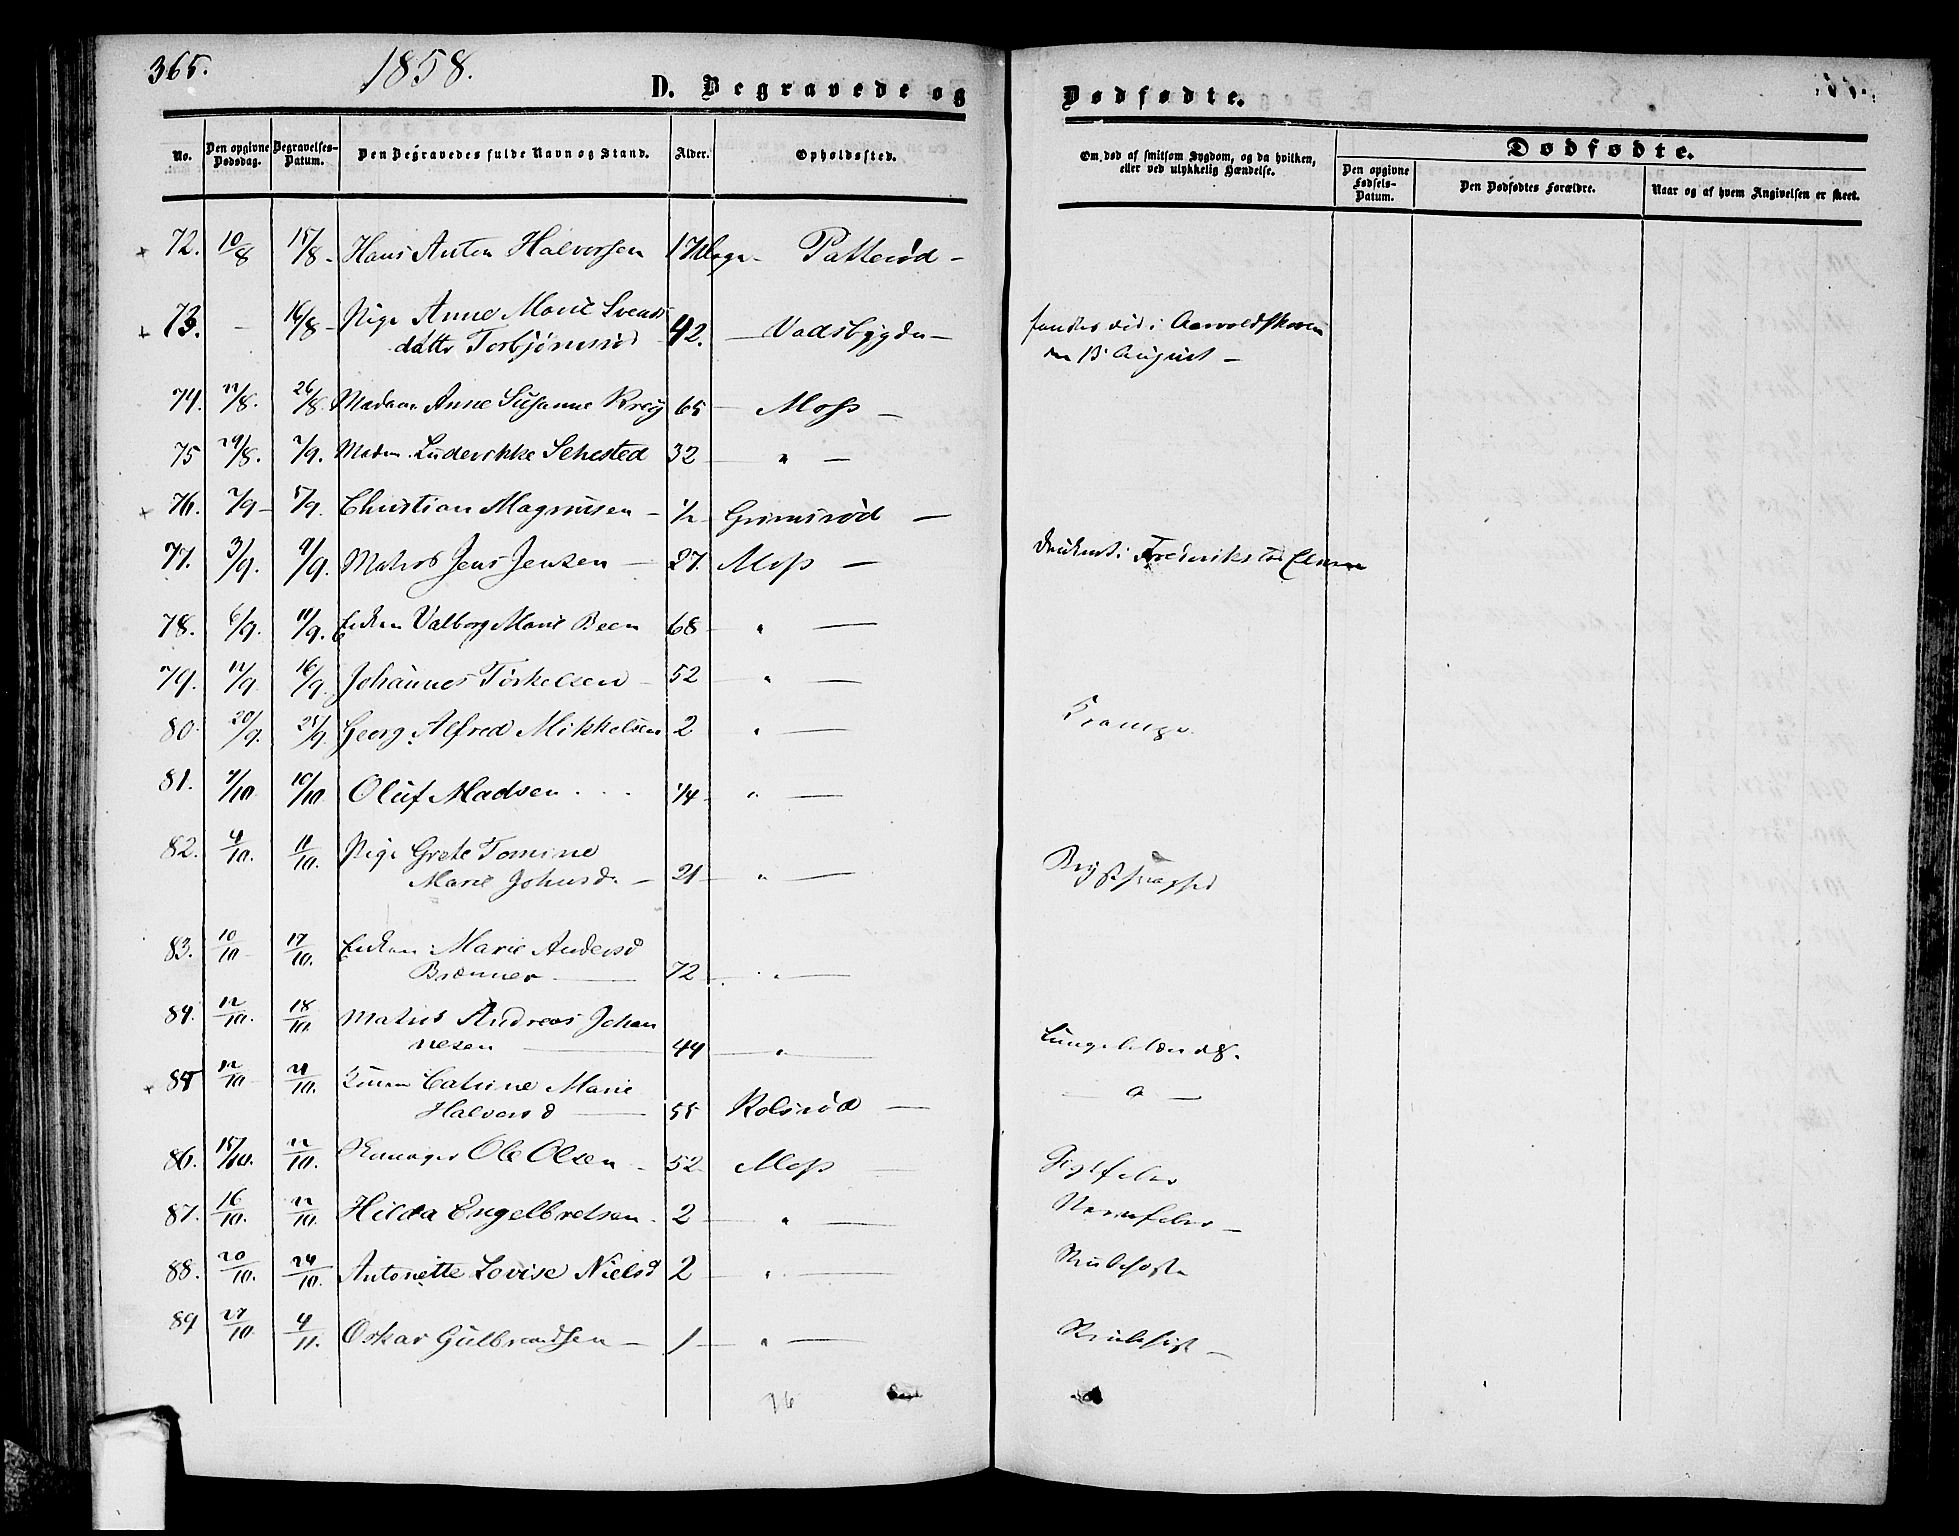 365. 1858.
D. Begravede og Dødfødte.
No. Den opgivne Dødsdag. Begravelses-Datum. Den Begravedes fulde Navn og Stand. Alder. Opholdssted. Om død af smitsom Sygdom, og da hvilken, eller ved ulykkelig Hændelse. Dødfødte.
Den opgivne Fødsels-Datum. Den Dødfødtes Forældre. Naar og af hvem Angivelsen er skeet.
+ 72. 10/8 15/8 - Hans Anton Halvorsen 17 Dage - Patterød -
+ 73. - 16/8 - Pige Anne Marie Svends
datter Torbjørnsrød 42. - Vadsbygden - fandtes død i Aarvoldskoven
den 13 August -
74. 22/8. 26/8. Madam Anne Susanne Krey 65 - Moss -
75 29/8. 2/9. Madm. Ludevikke Sehested 32 - " -
+ 76. 2/9 - 5/9. Christian Magnusen - 1/2 Grimsrød -
77. 3/9. 9/9. Matros Jens Jensen - 27. Moss - druknet i Frederikstad Elven
78. 6/9. 11/9. Enken Valborg Marie Been 68 - " -
79. 12/9. 16/9. Johannes Torkelsen - 52 " -
80. 20/9. 25/9. Georg Alfred Mikkelsen 2 " - Krampe.
81. 4/10. 10/10. Oluf Madsen . . . 1/4 - " -
82. 4/10. 11/10. Pige Grete Tomine
Marie Johnsd. - 21 - " - Brystsvaghed
83. 10/10 - 17/10. Enken Marie Andersd
Brenner - 72 - " -
84. 12/10. 18/10. Matros Andreas Johan
nesen - 44 - " - Lungebetændelse.
+ 85 12/10 - 21/10. Konen Catrine Marie
Halversd - 55 Rolsrød - - " -
86. 15/10. 22/10. Ole Olsen - 52 Moss -
87. 16/10. 22/10. Hilda Engelbretsen. 2 - " - Nervefeber -
88. 20/10. 24/10. Antonette Lovise Nielsd 2 - " -
89 27/10. 4/11. Oskar Gulbrandsen - 1 - " -
16